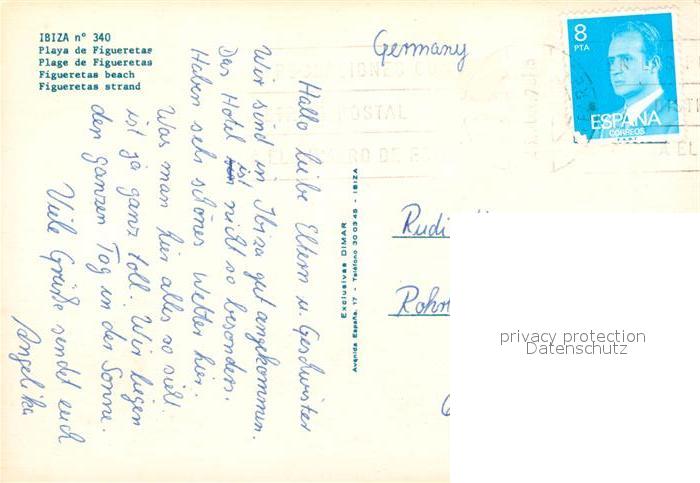 IBIZA nº 340
Playa de Figueretas
Plage de Figueretas
Figueretas beach
Figueretas strand
Germany
8
PTA
ESPAÑA
CORREOS
POSTAL
Hallo liebe Eltern u. Geschwister
Wir sind in Ibiza gut angekommen.
Das Hotel ist nicht so besonders.
Haben sehr schönes Wetter hier.
Was man hier alles so sieht
ist ja ganz toll. Wir liegen
den ganzen Tag in der Sonne.
Viele Grüße sendet euch
Angelika
Exclusivas DIMAR
Avenida España, 17 - Teléfono 30 03 45 - IBIZA
Rudi
Rohr
privacy protection
Datenschutz